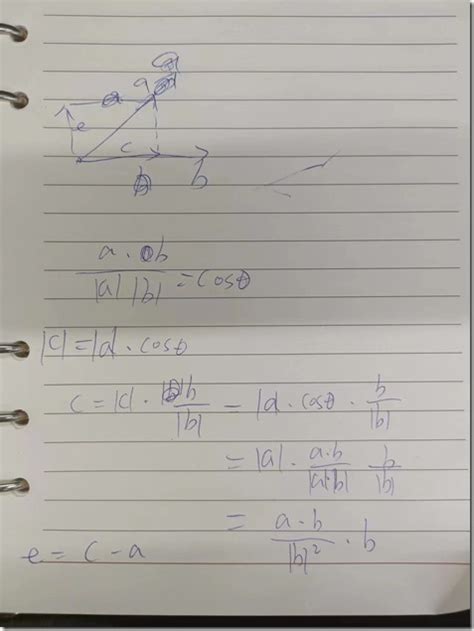 a
e
c
b
a · b / |a| |b| = cosθ
|c| = |a| · cosθ
c = |c| · b / |b| = |a| · cosθ · b / |b|
= |a| · a·b / |a|·|b| b / |b|
= a · b / |b|² · b
e = c - a